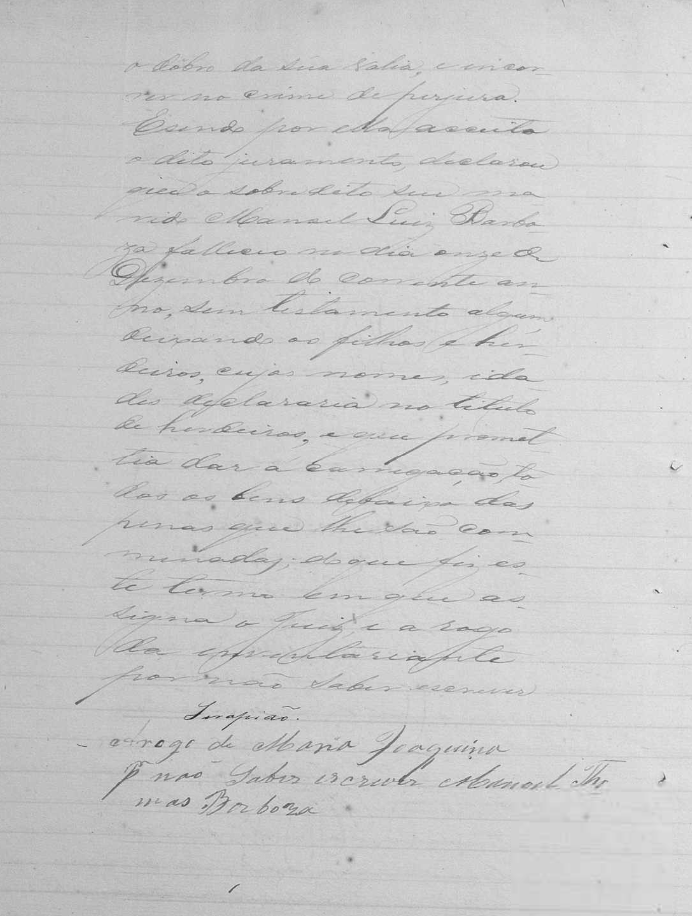 o dobro da sua valia, e incor-
rer no crime de perjura.
E sendo por ella acceito
o dito juramento, declarou
que o sobredito seu ma
rido Manoel Luiz Barbo
za falleceo no dia onze de
Dezembro do corrente an-
no, sem testamento algum
deixando os filhos e her-
deiros, cujos nomes, ida
des declararia no titulo
de herdeiros, e que promet
tia dar á carregação to
dos os bens debaixo das
penas que lhe são com-
minadas; do que fiz es-
te termo em que as-
signa o Juiz e a rogo
da inventariante
por não saber escrever
Serapião.
Arogo de Maria Joaquina
p não saber escrever Manoel Tho
mas Barboza